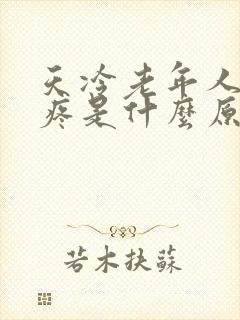 天冷老年人
疼是什麼原
若木扶蘇